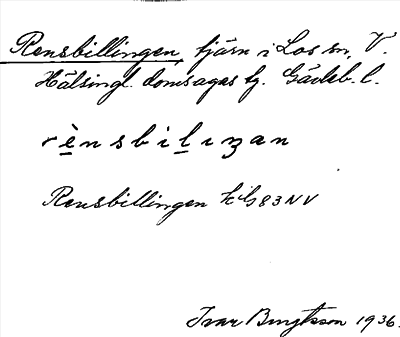 Rensbillingen, tjärn i Los sn, V.
Hälsingl. domsagas tg. Gävleb. l.
rènsbilıꞑan
Rensbillingen
83 NV
Ivar Bengtsson 1936.